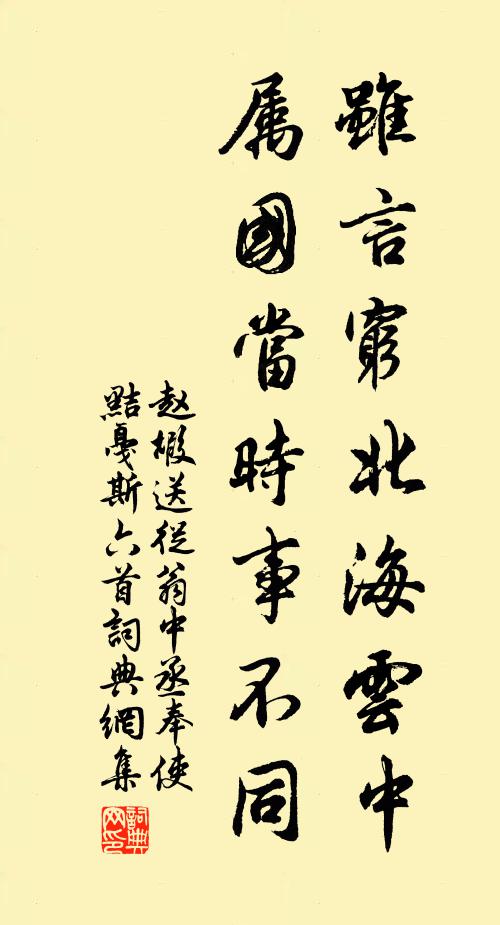 雖言窮北海雲中
属國當時事不同
赵嘏送從翁中丞奉使
黠戛斯六首詞典網集
詞典網印